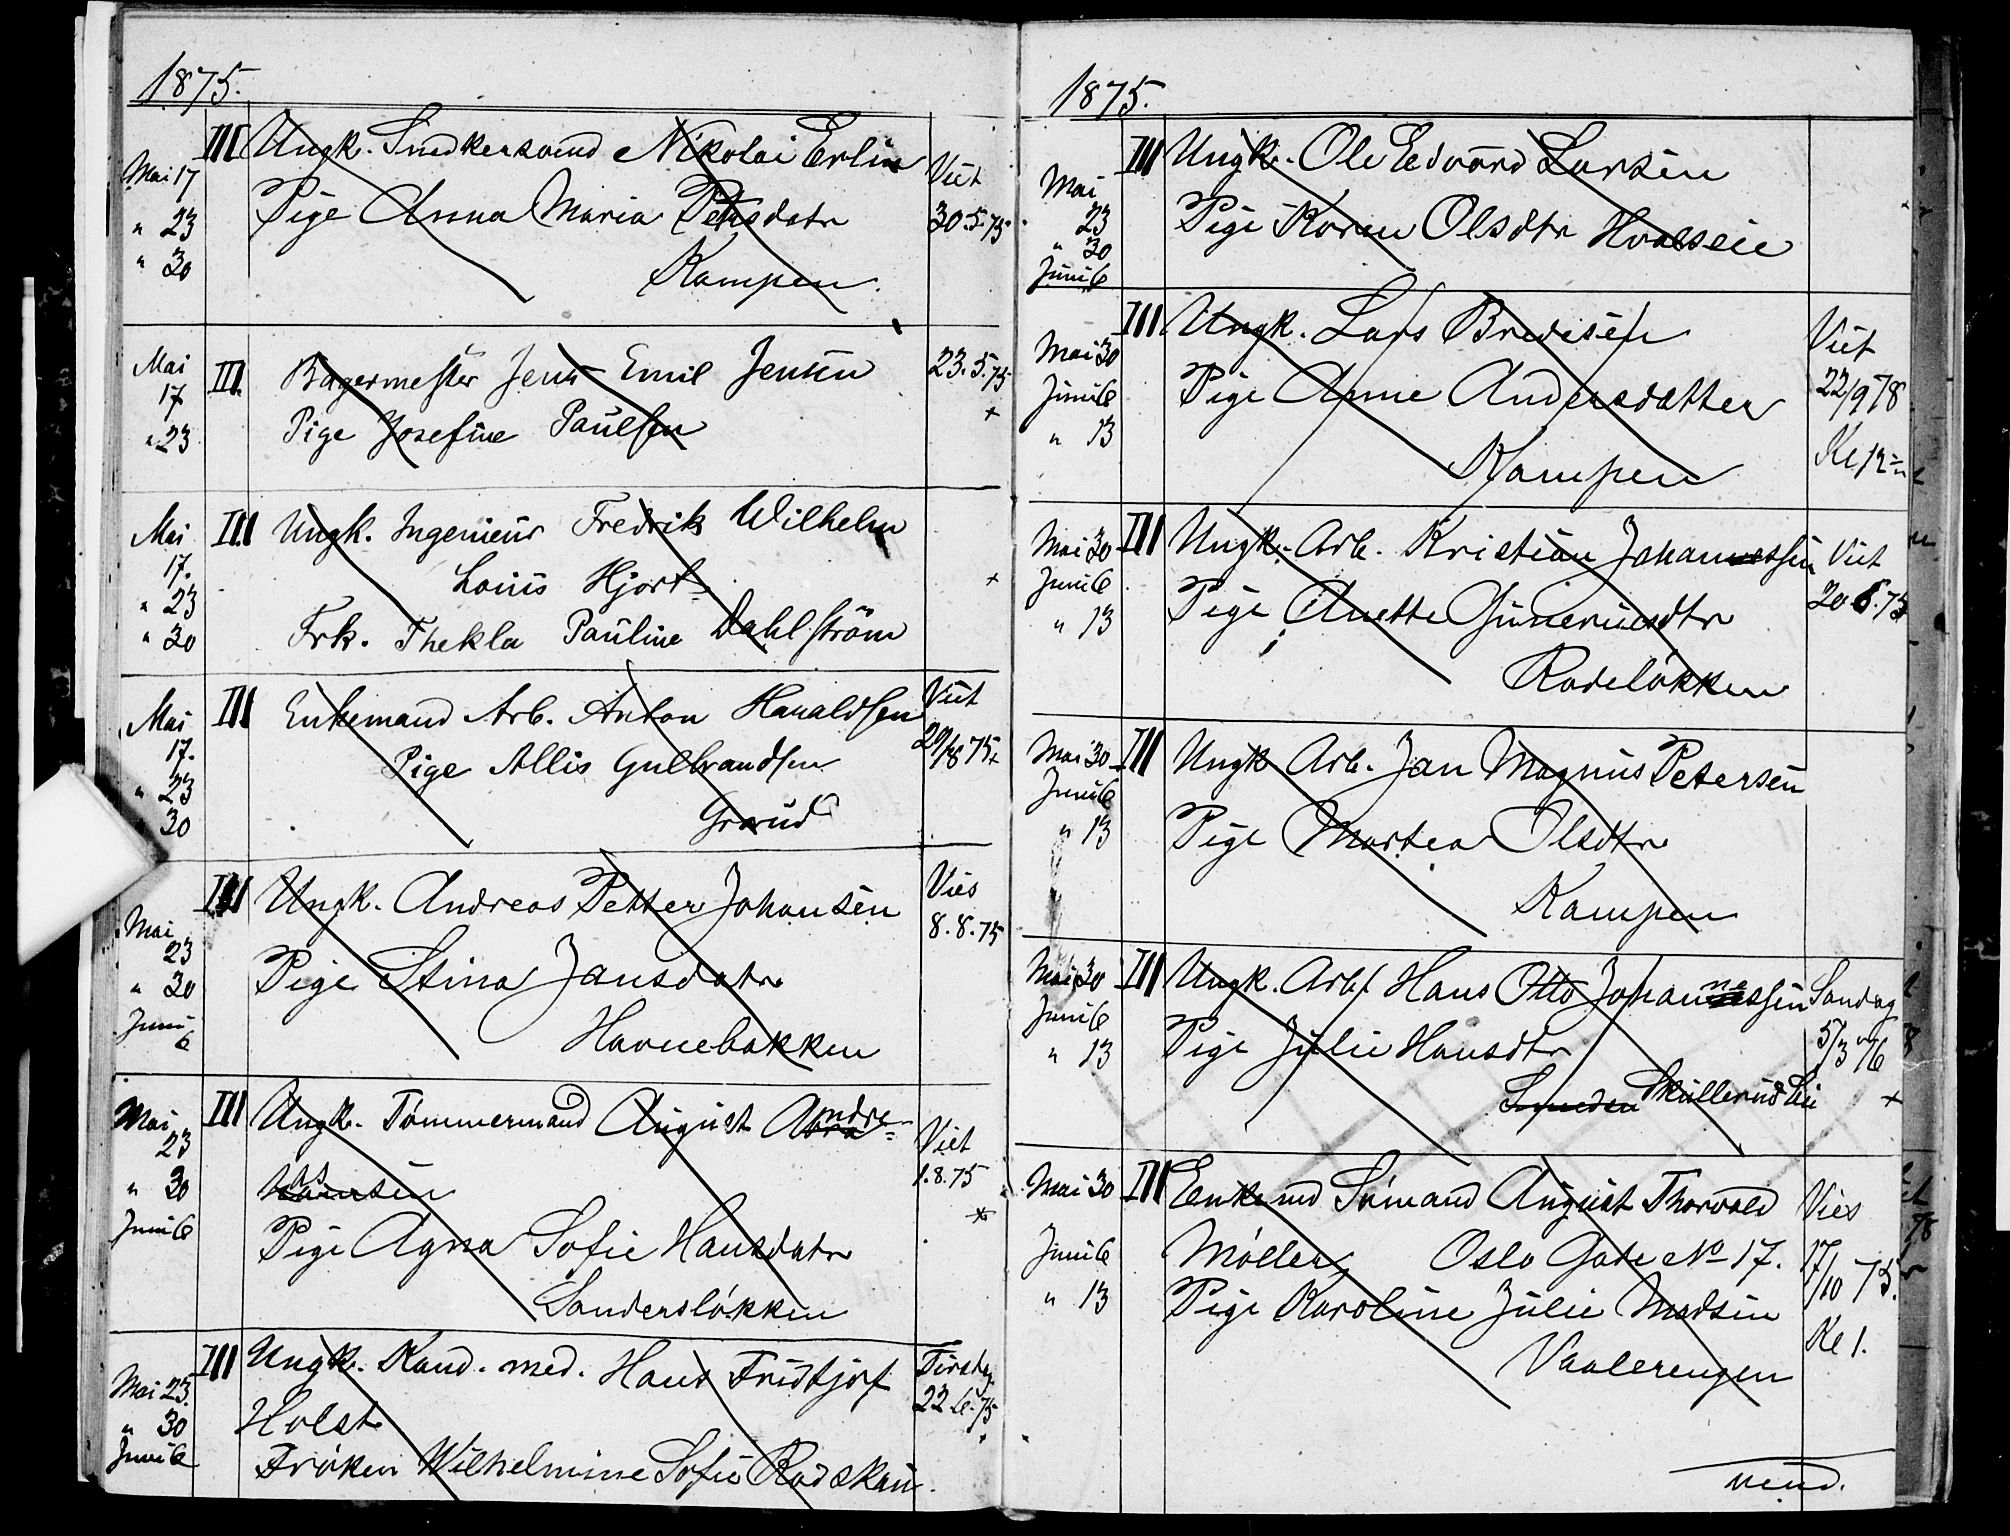 1875.
Mai 17 III Ungk. Snedkersvend Nikolai Erlin Viet
" 23 Pige Anna Maria Petersdatr 30.5.75
" 30 Kampen.
Mai III. Bagermester Jens Emil Jensen 23.5.75
17. Pige Josefine Paulsen +
" 23
Mai III Ungk. Ingenieur Fredrik Wilhelm
17. Louis Hjort +
" 23
" 30 Frk. Thekla Pauline Dahlström
Mai III Enkemand Arb. Anton Haraldsen Viet
17. Pige Allis Gulbrandsen 29/8 75 +
" 23
30 Grorud
III Ungk. Andreas Petter Johansen Vies
Mai 8.8.75
23 Pige Stina Jansdatr
" 30
Juni Havnebakken
6
Mai III Ungk. Tømmermand August Andre-
23 Viet
" 30 assen 1.8.75
Juni 6 Pige Agna Sofie Hansdatr +
Sandersløkken
III Ungk. Kand. med. Hans Fridtjof Tirsdag
Mai 23. 22.6.75
" 30 Holst
Juni 6 Frøken Wilhelmine Sofie Rodskau.
1875.
III Ungk. Ole Edvard Larsen
Mai
23 Pige Karen Olsdtr Hvalseie
" 30
Juni 6
III Ungk. Lars Bredesen Viet
Mai 30
Juni 6 Pige Anne Andersdatter 22/9 78
" 13 Kampen Kl 12
Mai 30 III Ungk. Arb. Kristian Johannessen Viet
Juni 6 20.6.75
" 13 Pige Anette Guneriusdtr
Rodeløkken
Mai 30 III Ungk Arb. Jan Magnus Petersen
Juni 6
" 13 Pige Martea Olsdtr
Kampen
Mai 30 III Ungk. Arb. Hans Otto Johannessen Søndag
Juni 6
" 13 Pige Julie Hansdtr 5/3 76
Skullerud Eie +
Mai 30 III Enkemd Sømand August Thorvald Vies
Juni 6 Møller, Oslo Gade No 17. 17/10 75.
" 13 Pige Karoline Julie Madsen
Vaalerengen Kl 1.
vend.